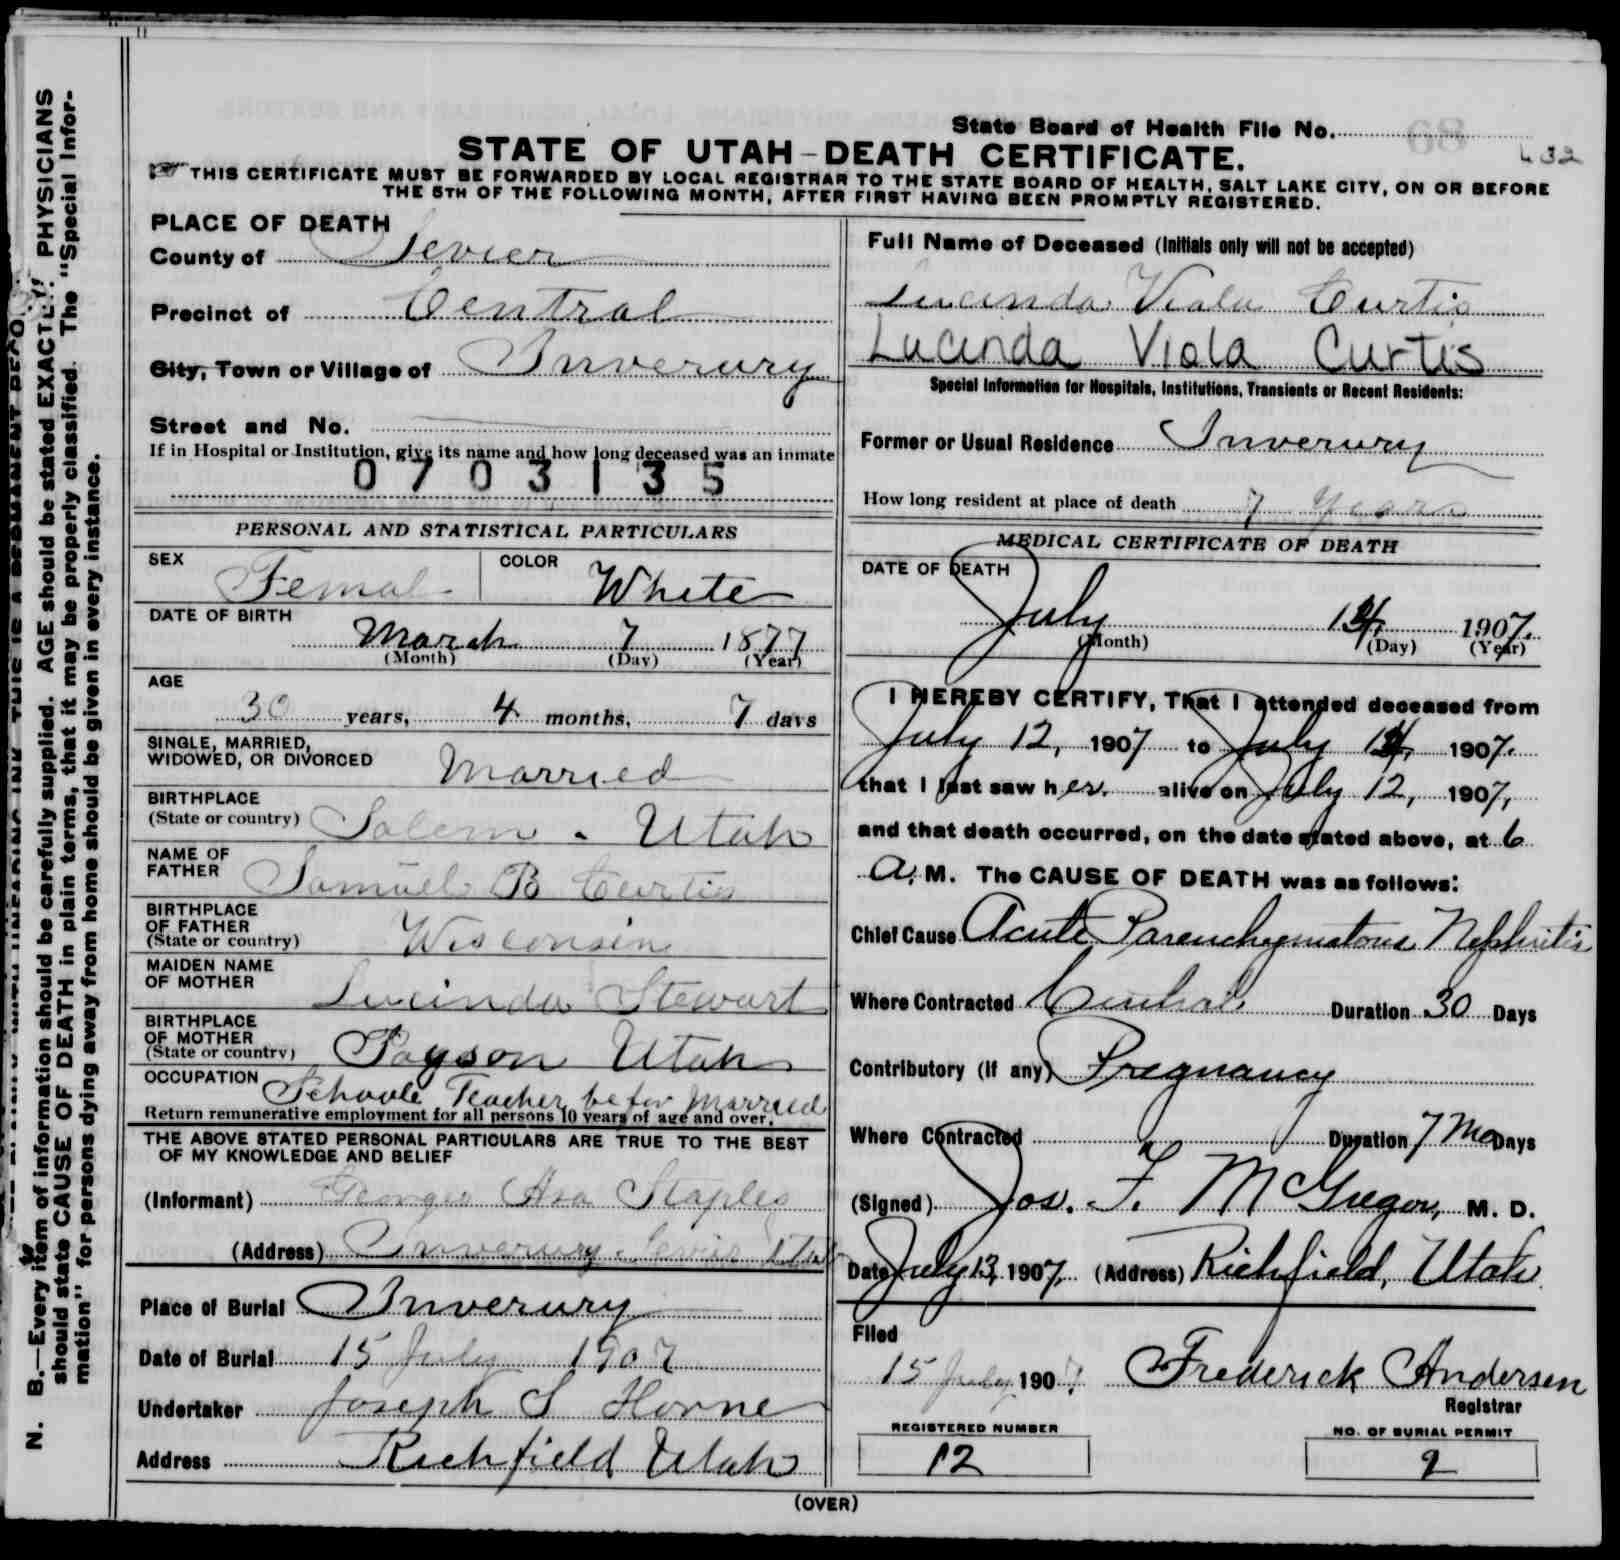 State Board of Health File No.
68
432
STATE OF UTAH-DEATH CERTIFICATE.
THIS CERTIFICATE MUST BE FORWARDED BY LOCAL REGISTRAR TO THE STATE BOARD OF HEALTH, SALT LAKE CITY, ON OR BEFORE
THE 5TH OF THE FOLLOWING MONTH, AFTER FIRST HAVING BEEN PROMPTLY REGISTERED.
PLACE OF DEATH
County of Sevier
Precinct of Central
City, Town or Village of Inverury
Street and No.
If in Hospital or Institution, give its name and how long deceased was an inmate
0703135
PERSONAL AND STATISTICAL PARTICULARS
SEX Femal COLOR White
DATE OF BIRTH
March 7 1877
(Month) (Day) (Year)
AGE
30 years, 4 months, 7 days
SINGLE, MARRIED,
WIDOWED, OR DIVORCED Married
BIRTHPLACE
(State or country) Salem - Utah
NAME OF
FATHER Samuel B Curtis
BIRTHPLACE
OF FATHER
(State or country) Wisconsin
MAIDEN NAME
OF MOTHER Lucinda Stewart
BIRTHPLACE
OF MOTHER
(State or country) Payson Utah
OCCUPATION Schoole Teacher befor Married
Return remunerative employment for all persons 10 years of age and over.
THE ABOVE STATED PERSONAL PARTICULARS ARE TRUE TO THE BEST
OF MY KNOWLEDGE AND BELIEF
(Informant) George Asa Staples
(Address) Inverury Sevier Utah
Place of Burial Inverury
Date of Burial 15 July 1907
Undertaker Joseph S Horne
Address Richfield Utah
Full Name of Deceased (Initials only will not be accepted)
Lucinda Viola Curtis
Lucinda Viola Curtis
Special Information for Hospitals, Institutions, Transients or Recent Residents:
Former or Usual Residence Inverury
How long resident at place of death 7 Years
MEDICAL CERTIFICATE OF DEATH
DATE OF DEATH
July 14, 1907.
(Month) (Day) (Year)
I HEREBY CERTIFY, That I attended deceased from
July 12, 1907 to July 14, 1907.
that I last saw her alive on July 12, 1907,
and that death occurred, on the date stated above, at 6
A. M. The CAUSE OF DEATH was as follows:
Chief Cause Acute Parenchymatous Nephritis
Where Contracted Central Duration 30 Days
Contributory (if any) Pregnancy
Where Contracted Duration 7 Mo Days
(Signed) Jos. F. McGregor, M. D.
Date July 13, 1907. (Address) Richfield, Utah
Filed
15 July 1907. Frederick Andersen
Registrar
REGISTERED NUMBER
12
NO. OF BURIAL PERMIT
9
(OVER)
N. B.—Every item of information should be carefully supplied. AGE should be stated EXACTLY. PHYSICIANS
should state CAUSE OF DEATH in plain terms, that it may be properly classified. The "Special Infor-
mation" for persons dying away from home should be given in every instance.